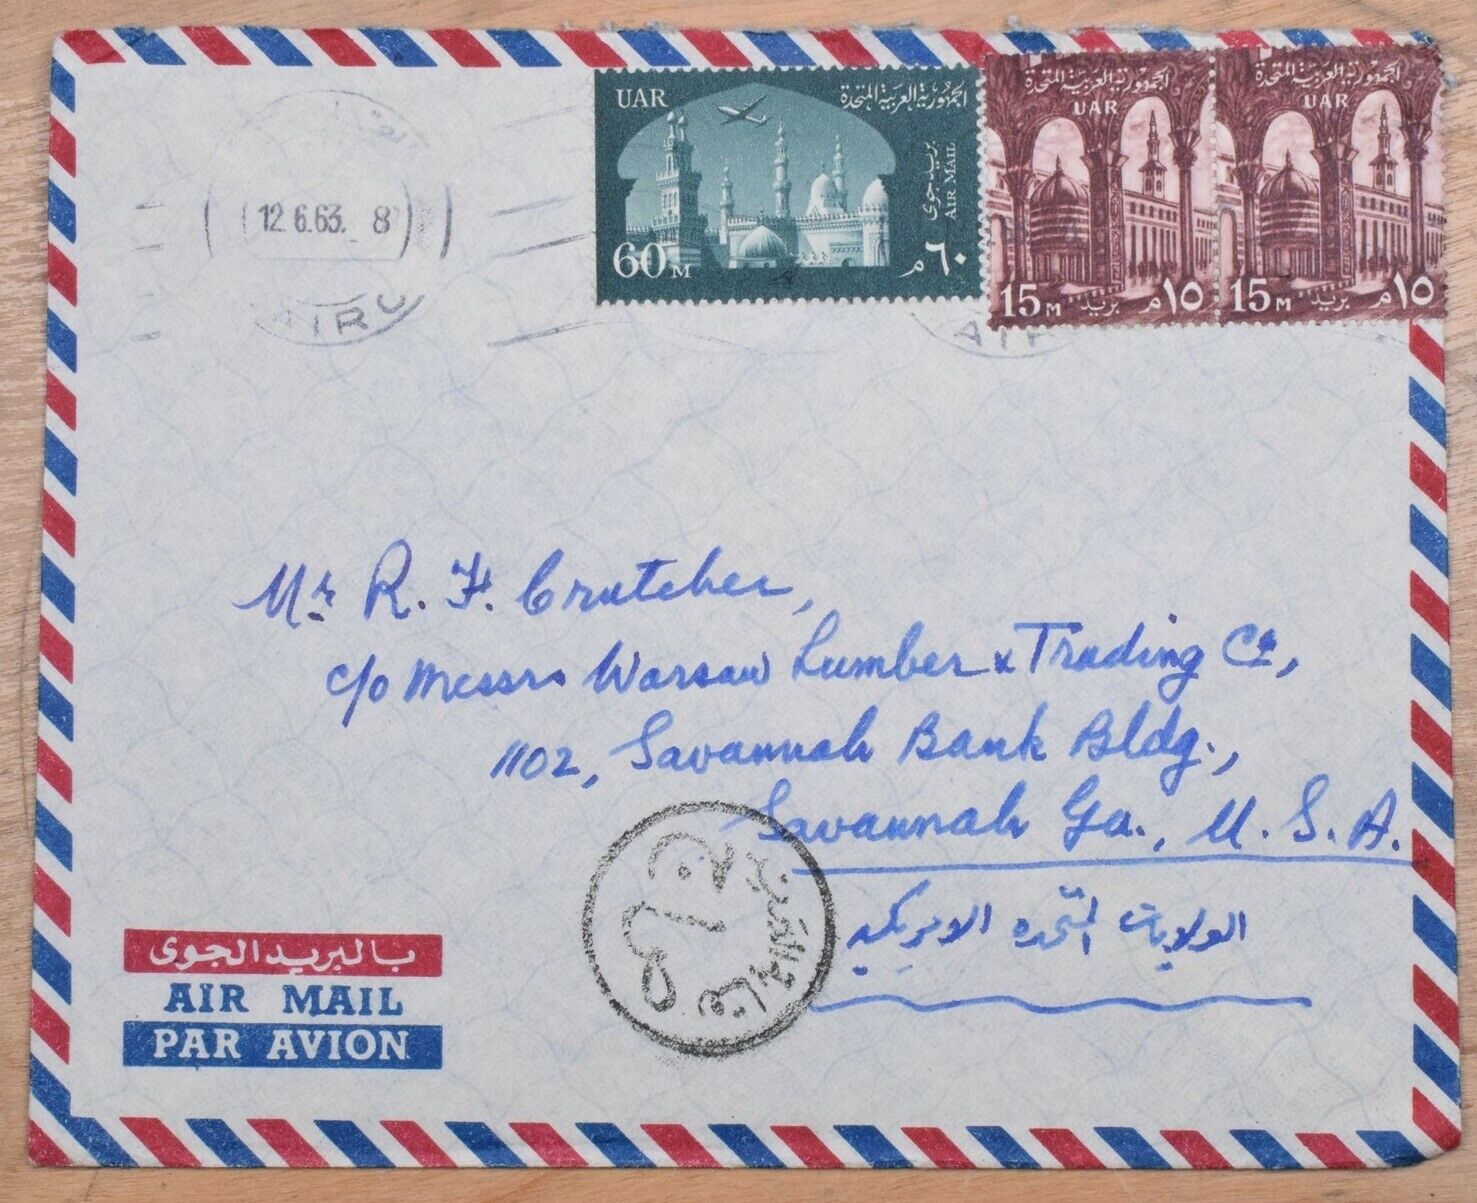 12.6.63. 8
CAIRO
UAR
الجمهورية العربية المتحدة
بريد جوى
AIR MAIL
60 M
٦٠ م
الجمهورية العربية المتحدة
UAR
15 M
بريد
١٥ م
الجمهورية العربية المتحدة
UAR
15 M
بريد
١٥ م
Mr R. F. Crutcher,
c/o Messrs Warsaw Lumber & Trading Co,
1102, Savannah Bank Bldg.,
Savannah Ga., U.S.A.
الولايات المتحدة الامريكية
بالبريد الجوى
AIR MAIL
PAR AVION